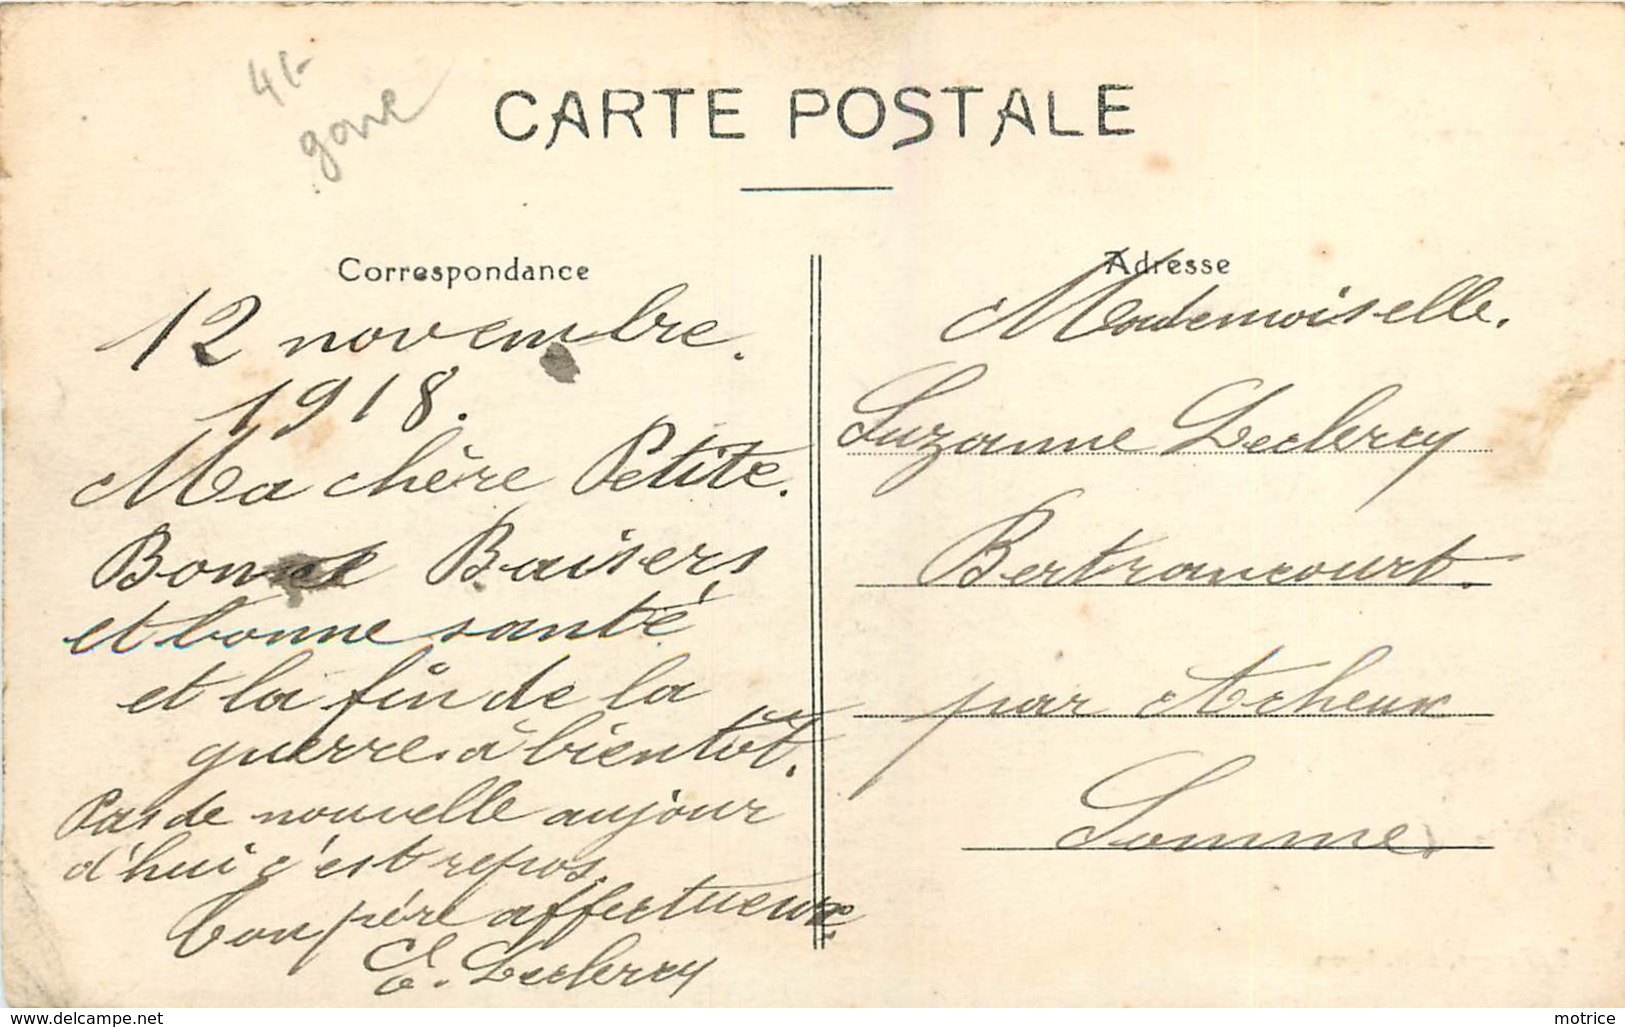 41-
gare
CARTE POSTALE
Correspondance
12 novembre.
1918.
Ma chère Petite.
Bonne Baisers
et bonne santé
et la fin de la
guerre. à bientôt.
Pas de nouvelle aujour
d'hui c'est repos.
ton père affectueux
E. Leclercy
Adresse
Mademoiselle.
Suzanne Leclercy
Bertrancourt.
par Acheux
Somme.
www.delcampe.net
motrice